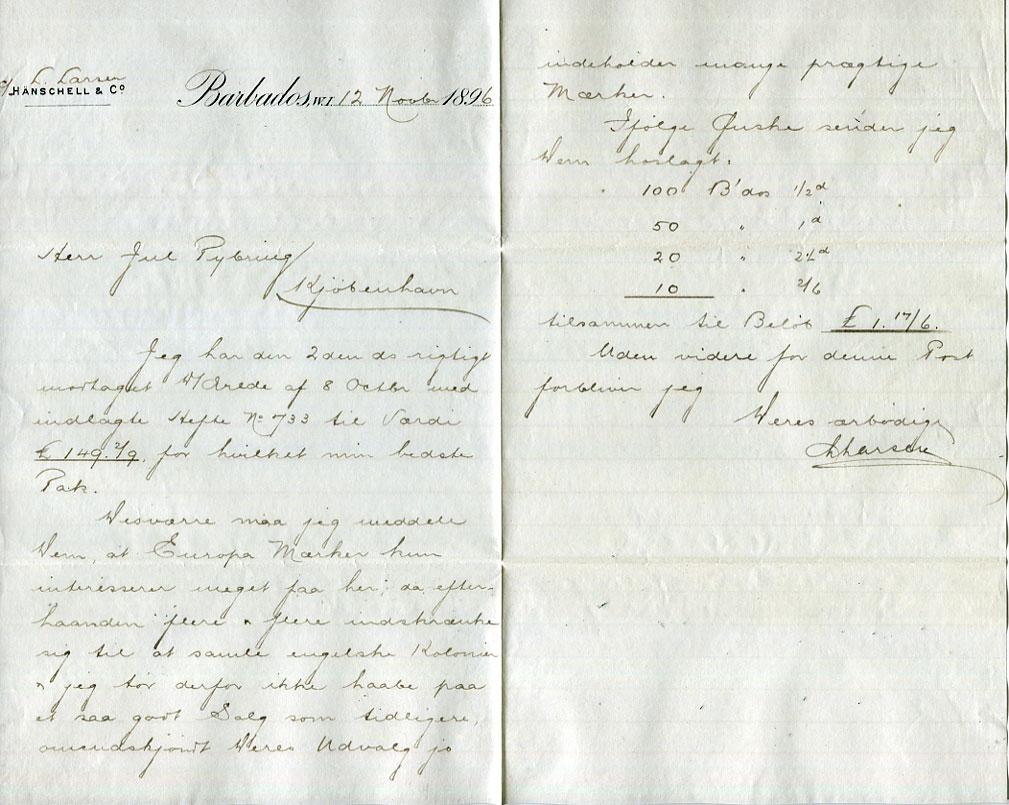 L. Larsen
c/ HÄNSCHELL & Co
Barbados, W.I. 12 Novbr 1896
Herr Jul Rybring
Kjöbenhavn
Jeg har den 2den ds rigtigt
modtaget D/Ærede af 8 Octbr med
indlagte Hefte No 733 til Værdi
£ 149.2/9. for hvilket min bedste
Tak.
Desværre maa jeg meddele
Dem, at Europa Mærker kun
interesserer meget faa her; da efter-
haanden flere & flere indskrænke
sig til at samle engelske Kolonier
& jeg tör derfor ikke haabe paa
et saa godt Salg som tidligere,
omendskjöndt Deres Udvalg jo
indeholder mange prægtige
Mærker.
Ifölge Önske sender jeg
Dem hoslagt.
100 B'dos 1/2d
50 " 1d
20 " 2½d
10 " 2/6
tilsammen til Belöb £ 1.17/6.
Uden videre for denne Post
forbliver jeg
Deres ærbödige
LLarsen